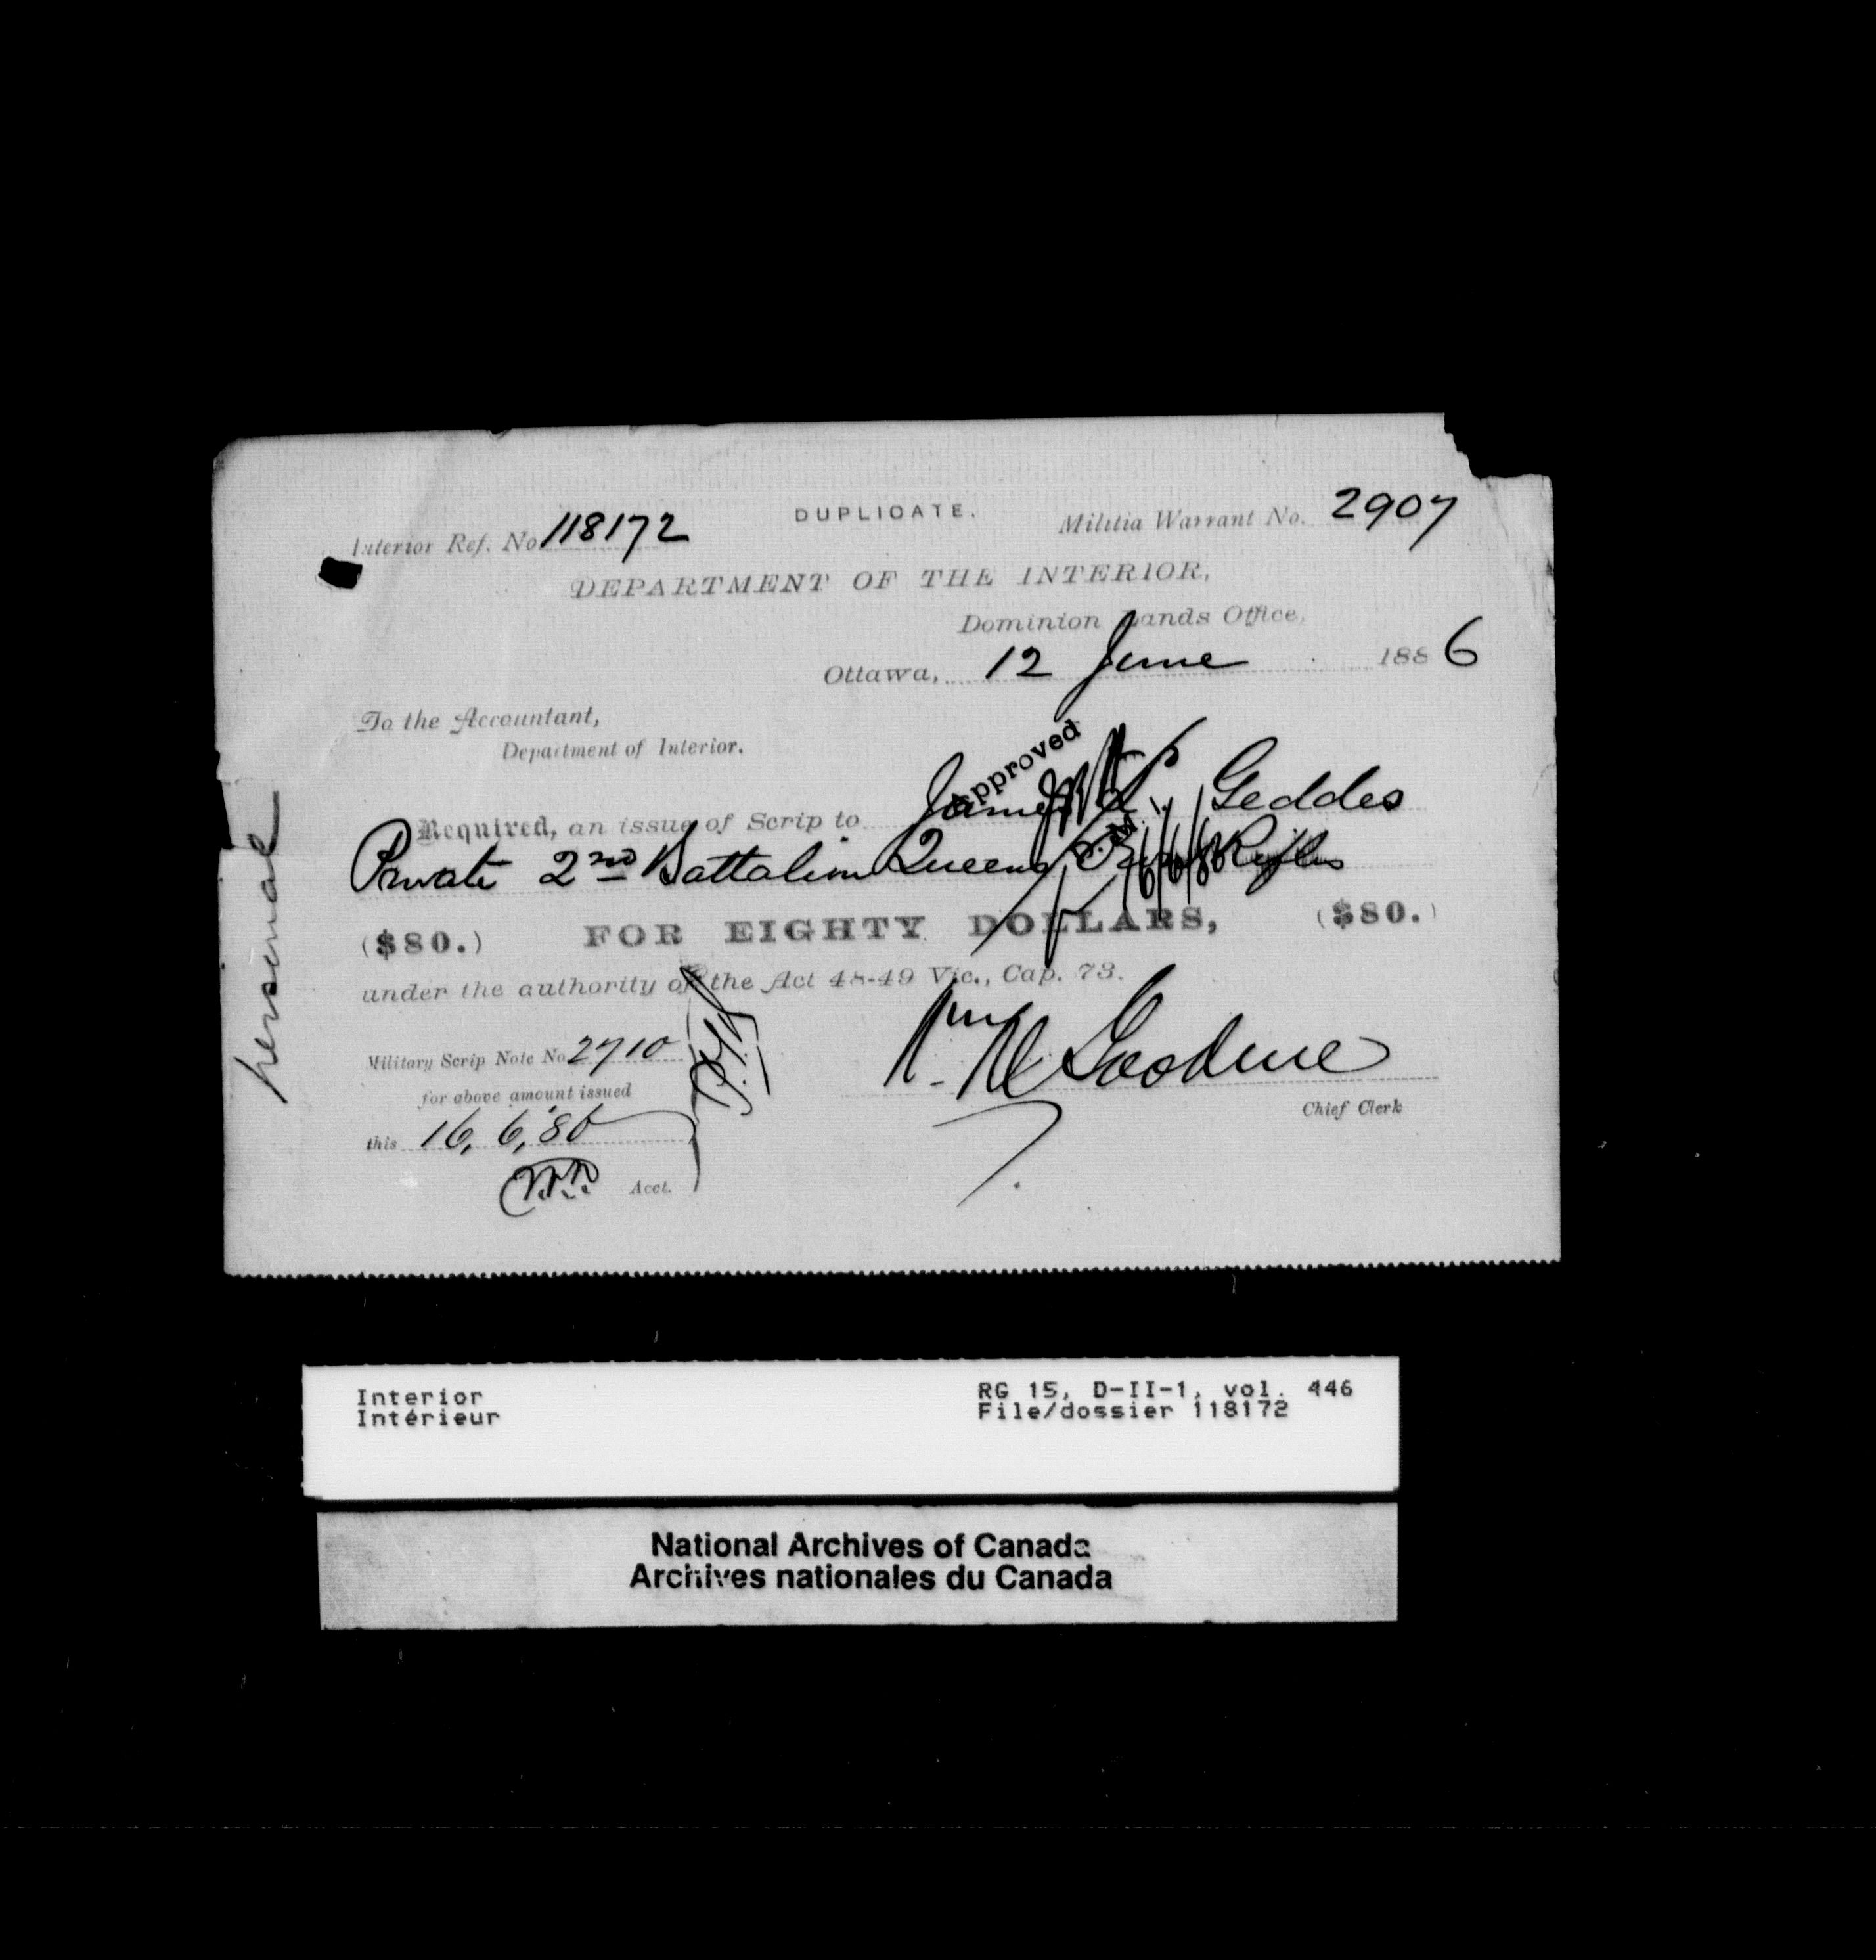 DUPLICATE.
Interior Ref. No 118172
Militia Warrant No. 2907
DEPARTMENT OF THE INTERIOR,
Dominion Lands Office,
Ottawa, 12 June 1886
To the Accountant,
Department of Interior.
Approved
Required, an issue of Scrip to James Geddes
Private 2nd Battalion Queens Own Rifles
($80.) FOR EIGHTY DOLLARS, ($80.)
under the authority of the Act 48-49 Vic., Cap. 73.
Military Scrip Note No 2710
for above amount issued
this 16, 6, 86
Acct.
Chief Clerk
personal
Interior
Intérieur
RG 15, D-II-1, vol. 446
File/dossier 118172
National Archives of Canada
Archives nationales du Canada